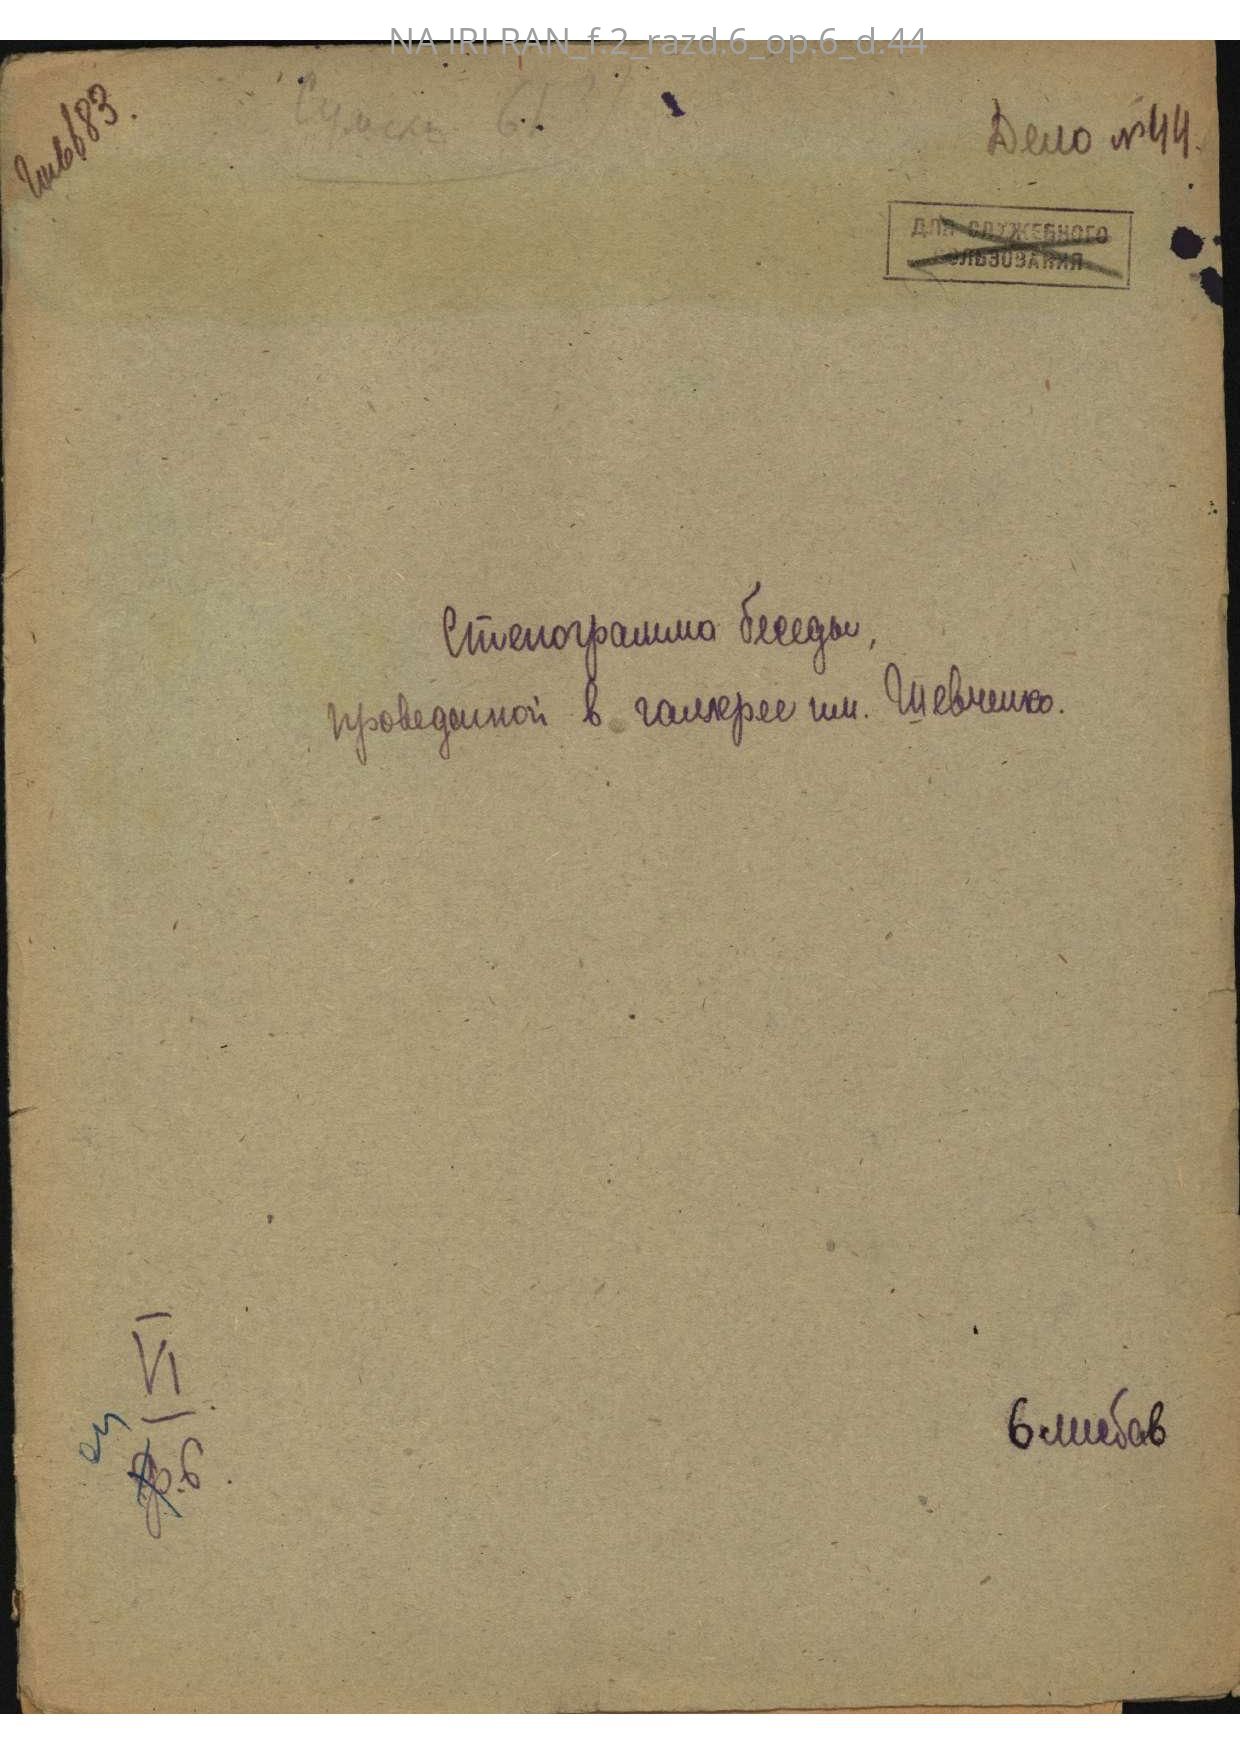 NA IRI RAN_f.2_razd.6_op.6_d.44
Инв83.
Сумская 61
Дело №44.
ДЛЯ СЛУЖЕБНОГО
ПОЛЬЗОВАНИЯ
Стенограмма беседы,
проведенной в галлерее им. Шевченко.
VI
6 листов